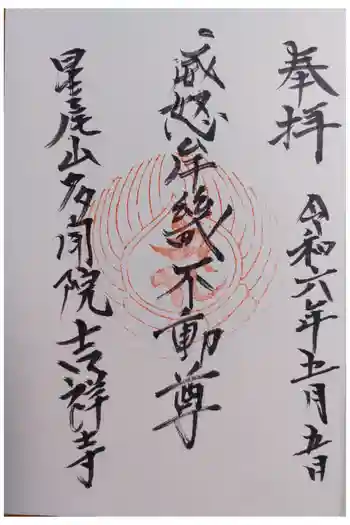 奉拝
令和六年五月五日
牟幾不動尊
星尾山多聞院吉祥寺